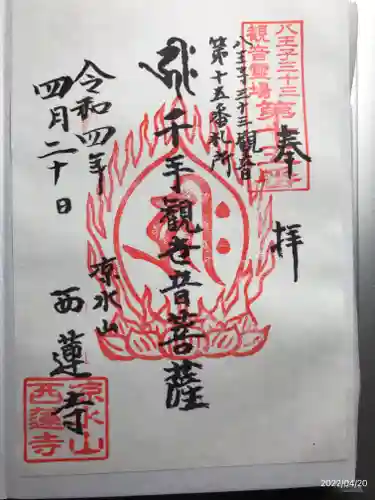 八王子三十三
観音霊場
奉拝
八王子三十三観音
第十五番札所
千手観世音菩薩
令和四年
四月二十日
凉水山
西蓮寺
凉水山
西蓮寺
2022/04/20